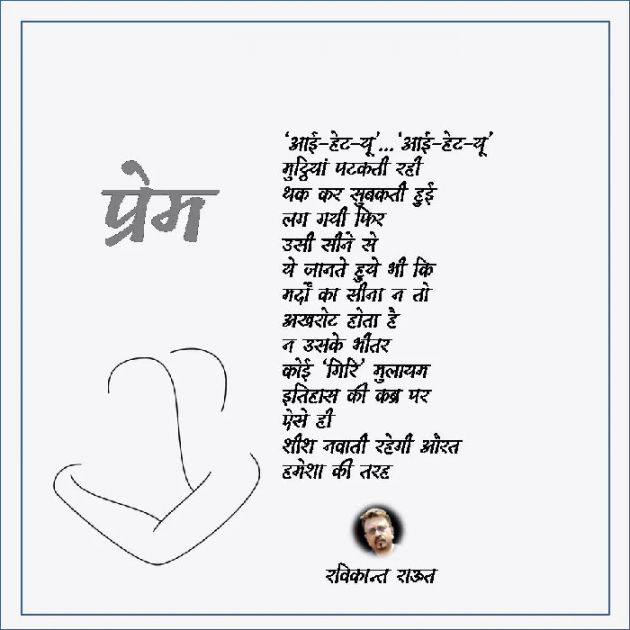 प्रेम
‘आई-हेट-यू’...‘आई-हेट-यू’
मुट्ठियां पटकती रही
थक कर सुबकती हुई
लग गयी फिर
उसी सीने से
ये जानते हुये भी कि
मर्दों का सीना न तो
अखरोट होता है
न उसके भीतर
कोई ‘गिरि’ मुलायम
इतिहास की कब्र पर
ऐसे ही
शीश नवाती रहेगी औरत
हमेशा की तरह
रविकान्त राऊत